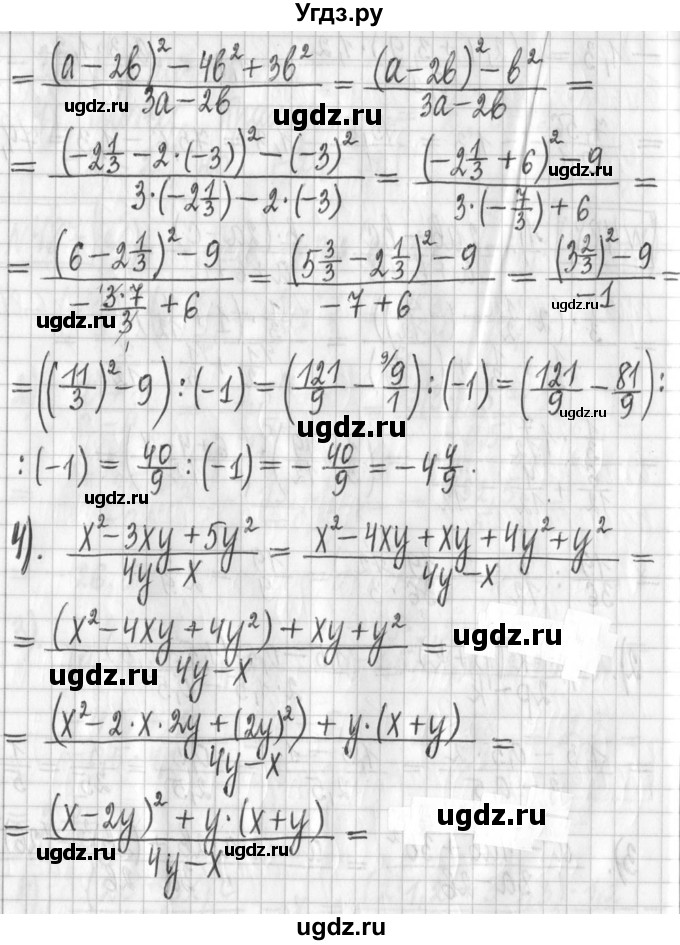 Угдз.ру
= ((a − 2b)² − 4b² + 3b²)/(3a − 2b) = ((a − 2b)² − b²)/(3a − 2b) =
ugdz.ru ugdz.ru ugdz.ru
= ((−2 1/3 − 2·(−3))² − (−3)²)/(3·(−2 1/3) − 2·(−3)) = ((−2 1/3 + 6)² − 9)/(3·(−7/3) + 6) =
ugdz.ru
= ((6 − 2 1/3)² − 9)/(−(3·7)/3 + 6) = ((5 3/3 − 2 1/3)² − 9)/(−7 + 6) = ((3 2/3)² − 9)/(−1) =
ugdz.ru ugdz.ru
= ((11/3)² − 9) : (−1) = (121/9 − 9/1) : (−1) = (121/9 − 81/9) :
ugdz.ru ugdz.ru
: (−1) = 40/9 : (−1) = − 40/9 = −4 4/9.
ugdz.ru
4). (x² − 3xy + 5y²)/(4y − x) = (x² − 4xy + xy + 4y² + y²)/(4y − x) =
ugdz.ru
= ((x² − 4xy + 4y²) + xy + y²)/(4y − x) =
ugdz.ru ugdz.ru
= ((x² − 2·x·2y + (2y)²) + y·(x + y))/(4y − x) =
= ((x − 2y)² + y·(x + y))/(4y − x) =
ugdz.ru ugdz.ru ugdz.ru
ugdz.ru